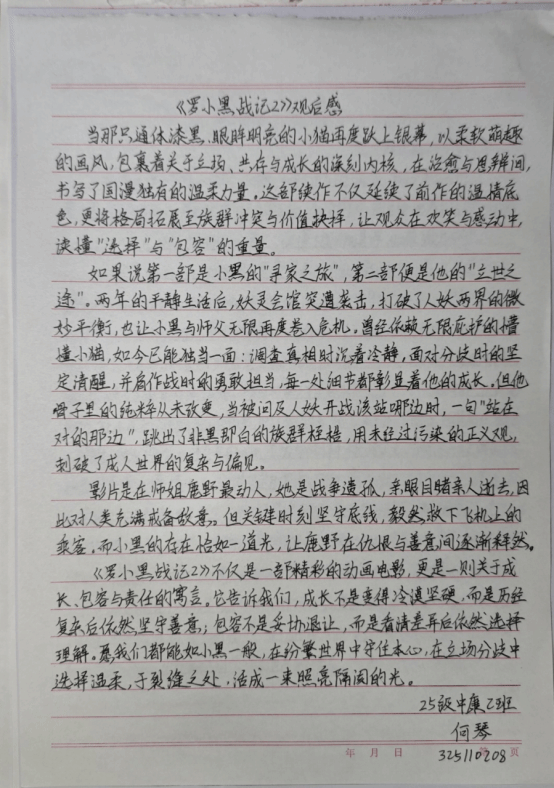 《罗小黑战记2》观后感
当那只通体漆黑、眼眸明亮的小猫再度跃上银幕，以柔软萌趣
的画风，包裹着关于立场、共存与成长的深刻内核，在治愈与思辨间，
书写了国漫独有的温柔力量。这部续作不仅延续了前作的温情底
色，更将格局拓展至族群冲突与价值抉择，让观众在欢笑与感动中，
读懂"选择"与"包容"的重量。
如果说第一部是小黑的"寻家之旅"，第二部便是他的"立世之
途"。两年的平静生活后，妖灵会馆突遭袭击，打破了人妖两界的微
妙平衡，也让小黑与师父无限再度卷入危机。曾经依赖无限庇护的懵
懂小猫，如今已能独当一面：调查真相时沉着冷静，面对分歧时的坚
定清醒，并肩作战时的勇敢担当，每一处细节都彰显着他的成长。但他
骨子里的纯粹从未改变，当被问及人妖开战该站哪边时，一句"站在
对的那边"，跳出了非黑即白的族群桎梏，用未经过污染的正义观，
刺破了成人世界的复杂与偏见。
影片是在师姐鹿野最动人，她是战争遗孤，亲眼目睹亲人逝去，因
此对人类充满戒备敌意。但关键时刻坚守底线，毅然救下飞机上的
乘客。而小黑的存在恰如一道光，让鹿野在仇恨与善意间逐渐释然。
《罗小黑战记2》不仅是一部精彩的动画电影，更是一则关于成
长、包容与责任的寓言。它告诉我们，成长不是变得冷漠坚硬，而是历经
复杂后依然坚守善意；包容不是妥协退让，而是看清差异后依然选择
理解。愿我们都能如小黑一般，在纷繁世界中守住本心，在立场分歧中
选择温柔，于裂缝之处，活成一束照亮隔阂的光。
25级中康乙班
何琴
325110208
年 月 日 页